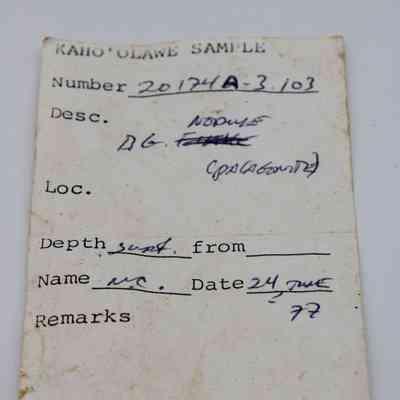 KAHO'OLAWE SAMPLE
Number 20174A-3.103
Desc.
NODULE
(PALAGONITE)
Loc.
Depth surf. from
Name Date 24 JUNE
77
Remarks